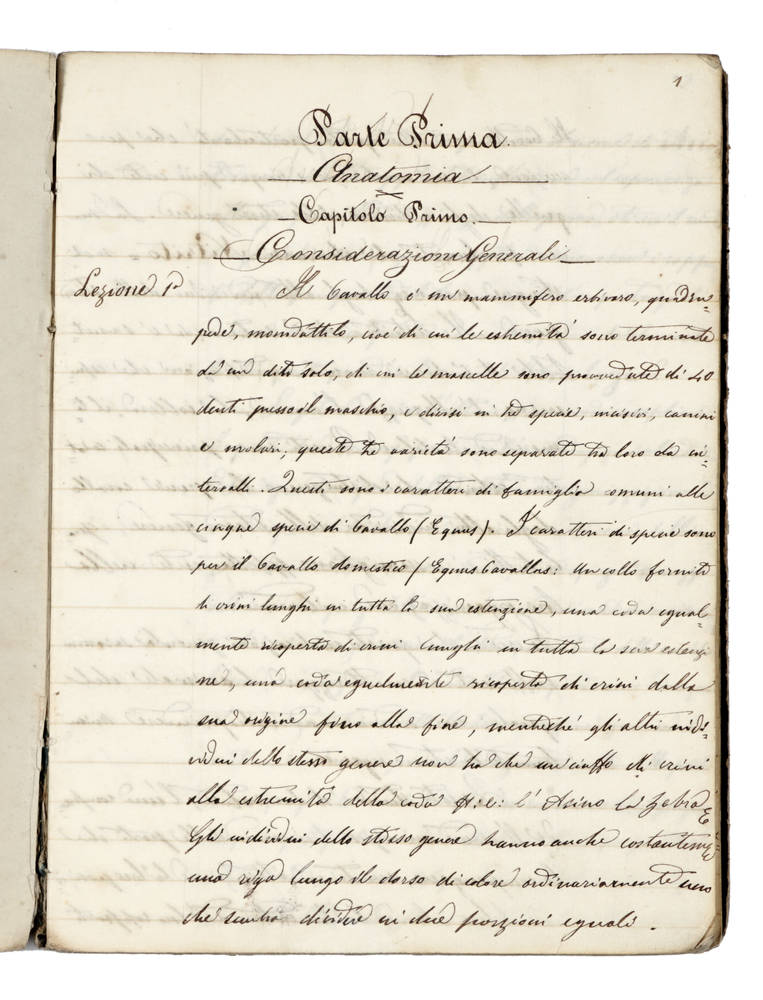 1
Parte Prima.
Anatomia
Capitolo Primo.
Considerazioni Generali
Lezione 1ª Il Cavallo è un mammifero erbivoro, quadru=
pede, monodattilo, cioè di cui le estremità sono terminate
da un dito solo, di cui le mascelle sono provvedute di 40
denti presso il maschio, e divisi in tre specie, incisivi, canini
e molari, queste tre varietà sono separate tra loro da in=
tervalli. Questi sono i caratteri di famiglia comuni alle
cinque specie di Cavallo (Equus). I caratteri di specie sono
per il Cavallo domestico (Equus Cavallus: Un collo fornito
di crini lunghi in tutta la sua estenzione, una coda egual=
mente ricoperta di crini lunghi in tutta la sua estenzi
ne, una coda egualmente ricoperta di crini dalla
sua origine fino alla fine, mentrechè gli altri indi=
vidui dello stesso genere non ha che un ciuffo di crini
alla estremità della coda p:e: l'Asino la Zebra E
Gli individui dello stesso genere hanno anche costanteme
una riga lungo il dorso di colore ordinariamente nero
che sembra dividere in due porzioni eguali.